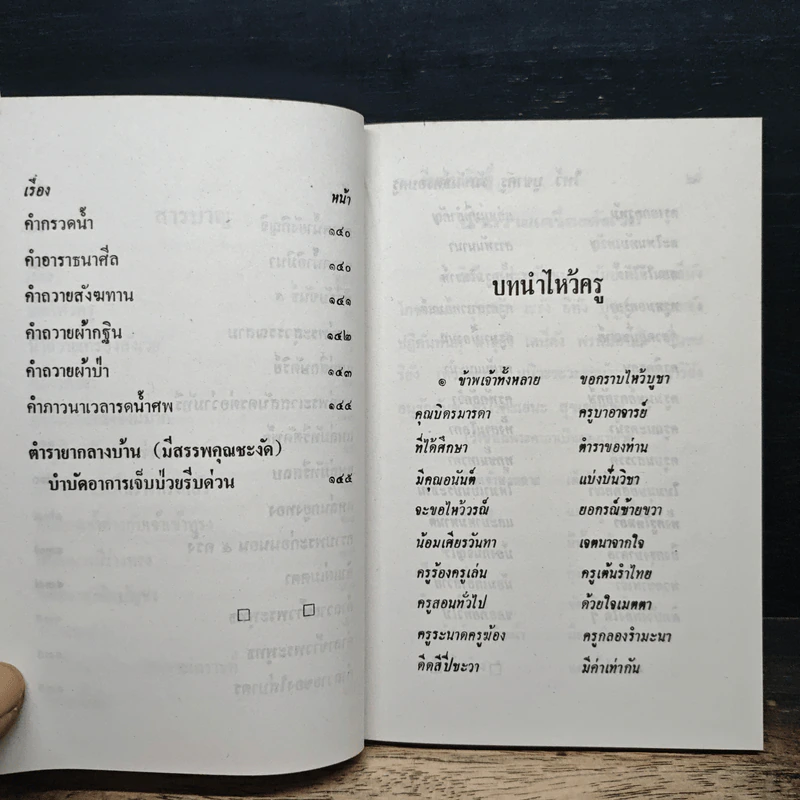 เรื่อง หน้า
คำกรวดน้ำ ๑๔๐
คำอาราธนาศีล ๑๔๐
คำถวายสังฆทาน ๑๔๑
คำถวายผ้ากฐิน ๑๔๒
คำถวายผ้าป่า ๑๔๓
คำภาวนาเวลารดน้ำศพ ๑๔๔
ตำรายากลางบ้าน (มีสรรพคุณชะงัด)
บำบัดอาการเจ็บป่วยรีบด่วน ๑๔๕
บทนำไหว้ครู
๑ ข้าพเจ้าทั้งหลาย ขอกราบไหว้บูชา
คุณบิดรมารดา ครูบาอาจารย์
ที่ได้ศึกษา ตำราของท่าน
มีคุณอนันต์ แบ่งปันวิชา
จะขอไหว้วรณ์ ยอกรณ์ซ้ายขวา
น้อมเศียรวันทา เจตนาจากใจ
ครูร้องครูเล่น ครูเต้นรำไทย
ครูสอนทั่วไป ด้วยใจเมตตา
ครูระนาดครูฆ้อง ครูกลองรำมะนา
ดีดสีปี่ชะวา มีค่าเท่ากัน